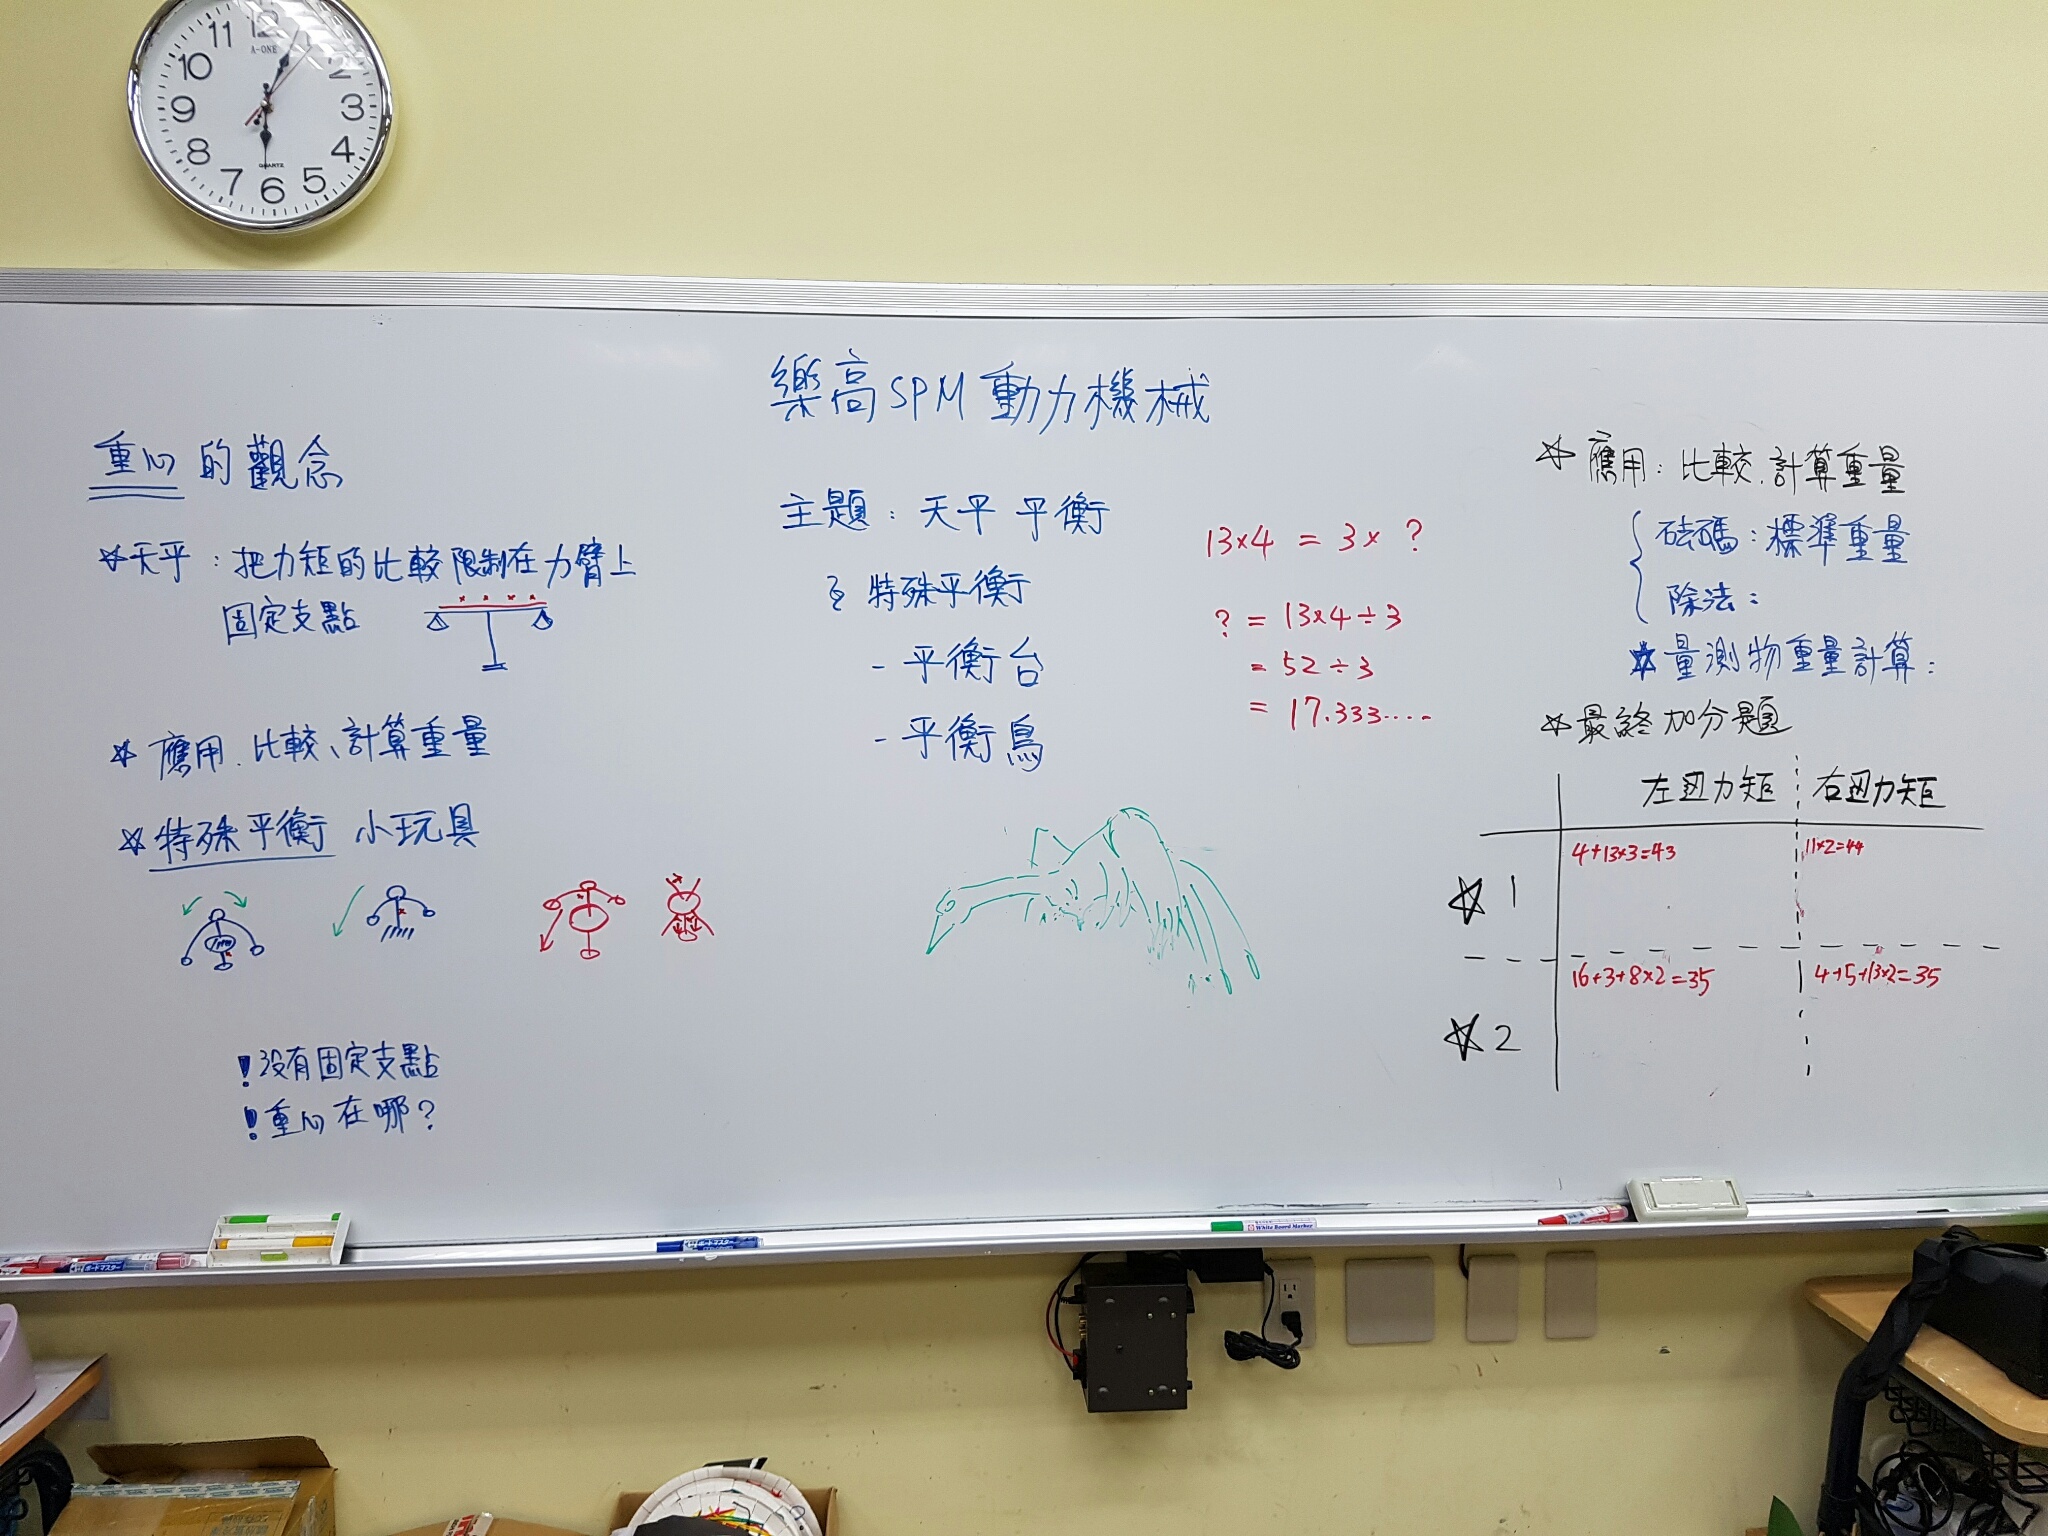 12
11
10
2
9
3
8
4
7
6
5
A-ONE
QUARTZ
樂高SPM動力機械
重心的觀念
☆天平：把力矩的比較限制在力臂上
固定支點
☆應用.比較、計算重量
☆特殊平衡 小玩具
!沒有固定支點
!重心在哪？
主題：天平 平衡
特殊平衡
-平衡台
-平衡鳥
13×4 = 3× ?
? = 13×4÷3
= 52÷3
= 17.333....
☆應用：比較.計算重量
砝碼：標準重量
除法：
★量測物重量計算：
☆最終加分題
左 力矩 右 力矩
☆1
4+13×3=43
11×2=44
☆2
16+3+8×2=35
4+5+13×2=35
ボードマスター
ボードマスター
White Board Marker